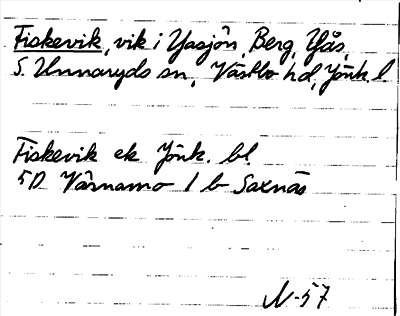 Fiskevik, vik i Yasjön, Berg, Yås,
S. Unnaryds sn, Västbo hd, Jönk. l.
Fiskevik ek Jönk. bl.
5D Värnamo 1 b Saxnäs
N-57